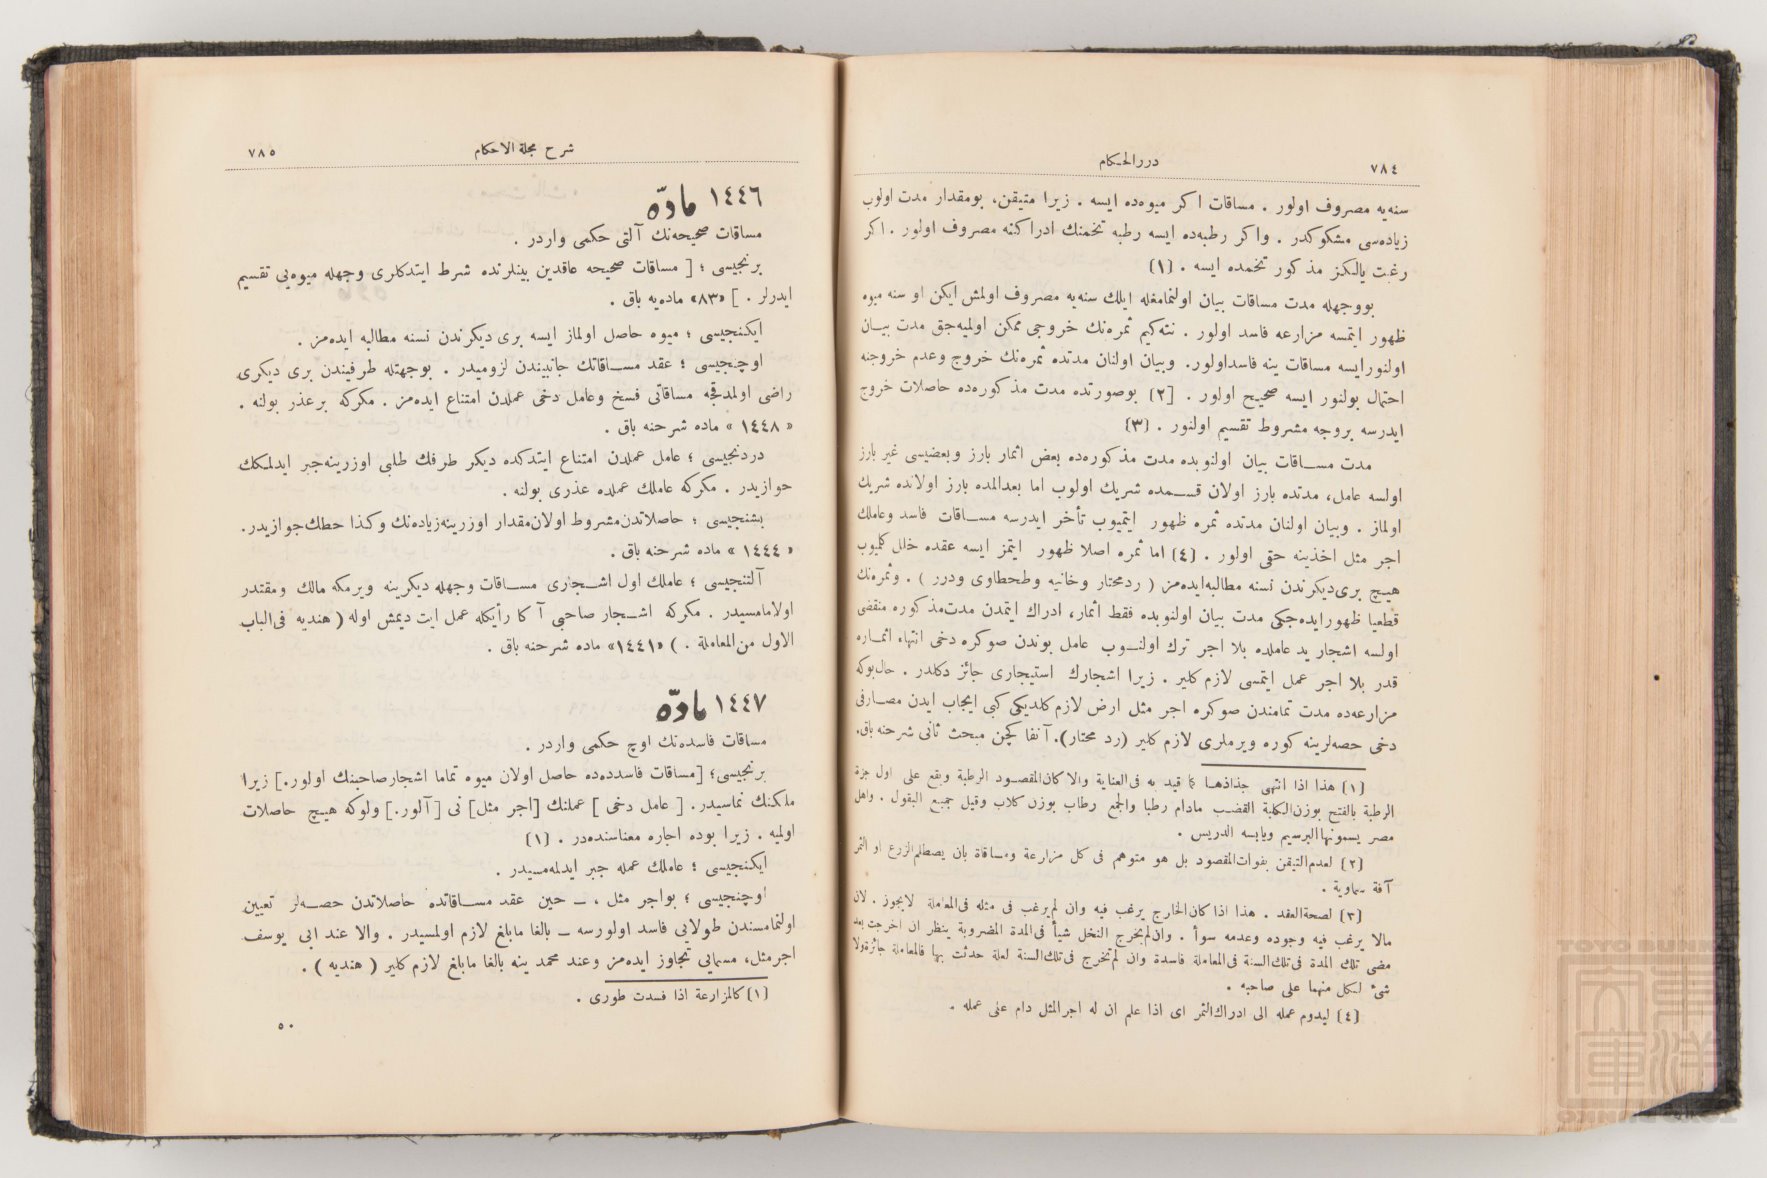 ٧٨٤
دررالحكام
سنه‌يه مصروف اولور . مساقات اكر ميوه‌ده ايسه . زيرا متيقن، بومقدار مدت اولوب
زياده‌سى مشكوكدر . واكر رطبه‌ده ايسه رطبه تخمنك ادراكنه مصروف اولور . اكر
رغبت يالكز مذكور تخمده ايسه . (١)
بووجهله مدت مساقات بيان اولنمامغله ايلك سنه‌يه مصروف اولمش ايكن او سنه ميوه
ظهور ايتمسه مزارعه فاسد اولور . نته‌كيم ثمره‌نك خروجى ممكن اولميه‌جق مدت بيان
اولنورايسه مساقات ينه فاسداولور. وبيان اولنان مدتده ثمره‌نك خروج وعدم خروجنه
احتمال بولنور ايسه صحيح اولور . [٢) بوصورتده مدت مذكوره‌ده حاصلات خروج
ايدرسه بروجه مشروط تقسيم اولنور . (٣)
مدت مساقات بيان اولنوبده مدت مذكوره‌ده بعض اثمار بارز وبعضيسى غير بارز
اولسه عامل، مدتده بارز اولان قسمده شريك اولوب اما بعدالمده بارز اولانده شريك
اولماز . وبيان اولنان مدتده ثمره ظهور ايتميوب تأخر ايدرسه مساقات فاسد وعاملك
اجر مثل اخذينه حقى اولور . (٤) اما ثمره اصلا ظهور ايتمز ايسه عقده خلل كلميوب
هيچ برى‌ديكرندن نسنه مطالبه‌ايده‌مز ( ردمحتار وخانيه وطحطاوى ودرر ) . وثمره‌نك
قطعيا ظهورايده‌جكى مدت بيان اولنوبده فقط اثمار، ادراك ايتمدن مدت‌مذكوره منقضى
اولسه اشجار يد عاملده بلا اجر ترك اولنوب عامل بوندن صوكره دخى انتهاء اثماره
قدر بلا اجر عمل ايتمسى لازم كلير . زيرا اشجارك استيجارى جائز دكلدر . حال‌بوكه
مزارعه‌ده مدت تمامندن صوكره اجر مثل ارض لازم‌كلديكى كبى ايجاب ايدن مصارفى
دخى حصه‌لرينه كوره ويرملرى لازم كلير (رد محتار). آنفا كچن مبحث ثانى شرحنه باق.
(١) هذا اذا انتهى جذاذها كما قيد به فى‌العناية والا كان‌المقصود الرطبة ويقع على اول جزة
الرطبة بالفتح بوزن‌الكلبة القضب مادام رطبا والجمع رطاب بوزن كلاب وقيل جميع البقول . واهل
مصر يسمونهاالبرسيم ويابسه الدريس .
(٢) لعدم‌التيقن بفوات‌المقصود بل هو متوهم فى كل مزارعة ومساقاة بان يصطلم‌الزرع او الثمر
آفة سماوية .
(٣) لصحةالعقد . هذا اذا كان‌الخارج يرغب فيه وان لم‌يرغب فى مثله فى‌المعاملة لايجوز . لان
مالا يرغب فيه وجوده وعدمه سوأ . وان‌لم‌يخرج النخل شيأ فى‌المدة المضروبة ينظر ان اخرجت بعد
مضى تلك المدة فى‌تلك‌السنة فى‌المعاملة فاسدة وان لم‌تخرج فى‌تلك‌السنة لعلة حدثت بها فالمعاملة جائزةولا
شىء لكل منهما على صاحبه .
(٤) ليدوم عمله الى ادراك‌الثمر اى اذا علم ان له اجرالمثل دام على عمله .
شرح مجلة الاحكام
٧٨٥
١٤٤٦ مادّه
مساقات صحيحه‌نك آلتى حكمى واردر .
برنجيسى ؛ [ مساقات صحيحه عاقدين بينلرنده شرط ايتدكلرى وجهله ميوه‌يى تقسيم
ايدرلر . ] «٨٣» ماده‌يه باق .
ايكنجيسى ؛ ميوه حاصل اولماز ايسه برى ديكرندن نسنه مطالبه ايده‌مز .
اوچنجيسى ؛ عقد مساقاتك جانبيندن لزوميدر . بوجهتله طرفيندن برى ديكرى
راضى اولمدقجه مساقاتى فسخ وعامل دخى عملدن امتناع ايده‌مز . مكركه برعذر بولنه .
« ١٤٤٨ » ماده شرحنه باق .
دردنجيسى ؛ عامل عملدن امتناع ايتدكده ديكر طرفك طلبى اوزرينه‌جبر ايدلمكك
جوازيدر . مكركه عاملك عملده عذرى بولنه .
بشنجيسى ؛ حاصلاتدن‌مشروط اولان‌مقدار اوزرينه‌زياده‌نك وكذا حطك‌جوازيدر.
« ١٤٤٤ » ماده شرحنه باق .
آلتنجيسى ؛ عاملك اول اشجارى مساقات وجهله ديكرينه ويرمكه مالك ومقتدر
اولامامسيدر . مكركه اشجار صاحبى آ كا رأيكله عمل ايت ديمش اوله ( هنديه فى‌الباب
الاول من‌المعاملة . ) «١٤٤١» ماده شرحنه باق .
١٤٤٧ مادّه
مساقات فاسده‌نك اوچ حكمى واردر .
برنجيسى؛ [مساقات فاسده‌ده حاصل اولان ميوه تماما اشجارصاحبنك اولور.] زيرا
ملكنك نماسيدر. [ عامل دخى ] عملنك [اجر مثل] نى [آلور.] ولوكه هيچ حاصلات
اولميه . زيرا بوده اجاره معناسنده‌در . (١)
ايكنجيسى ؛ عاملك عمله جبر ايدلمه‌مسيدر .
اوچنجيسى ؛ بواجر مثل ، ـ حين عقد مساقاتده حاصلاتدن حصه‌لر تعيين
اولنمامسندن طولايى فاسد اولورسه ـ بالغا مابلغ لازم اولمسيدر . والا عند ابى يوسف
اجرمثل، مسمايى تجاوز ايده‌مز وعند محمد ينه بالغا مابلغ لازم كلير ( هنديه ) .
(١) كالمزارعة اذا فسدت طورى .
٥٠
TOYO BUNKO
東洋文庫